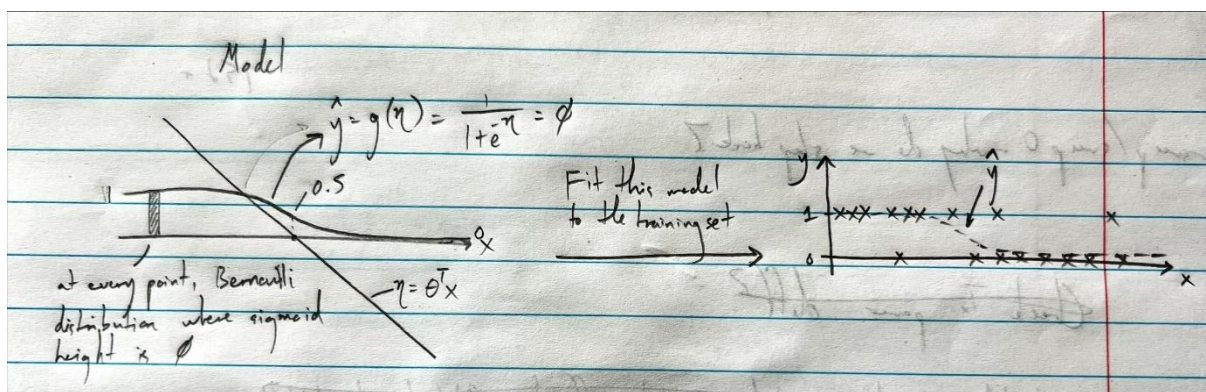 Model
ŷ = g(η) = 1/(1+e^-η) = φ
1
0.5
x
η = θᵀx
at every point, Bernoulli
distribution where sigmoid
height is φ
Fit this model
to the training set
y
ŷ
1
0
x